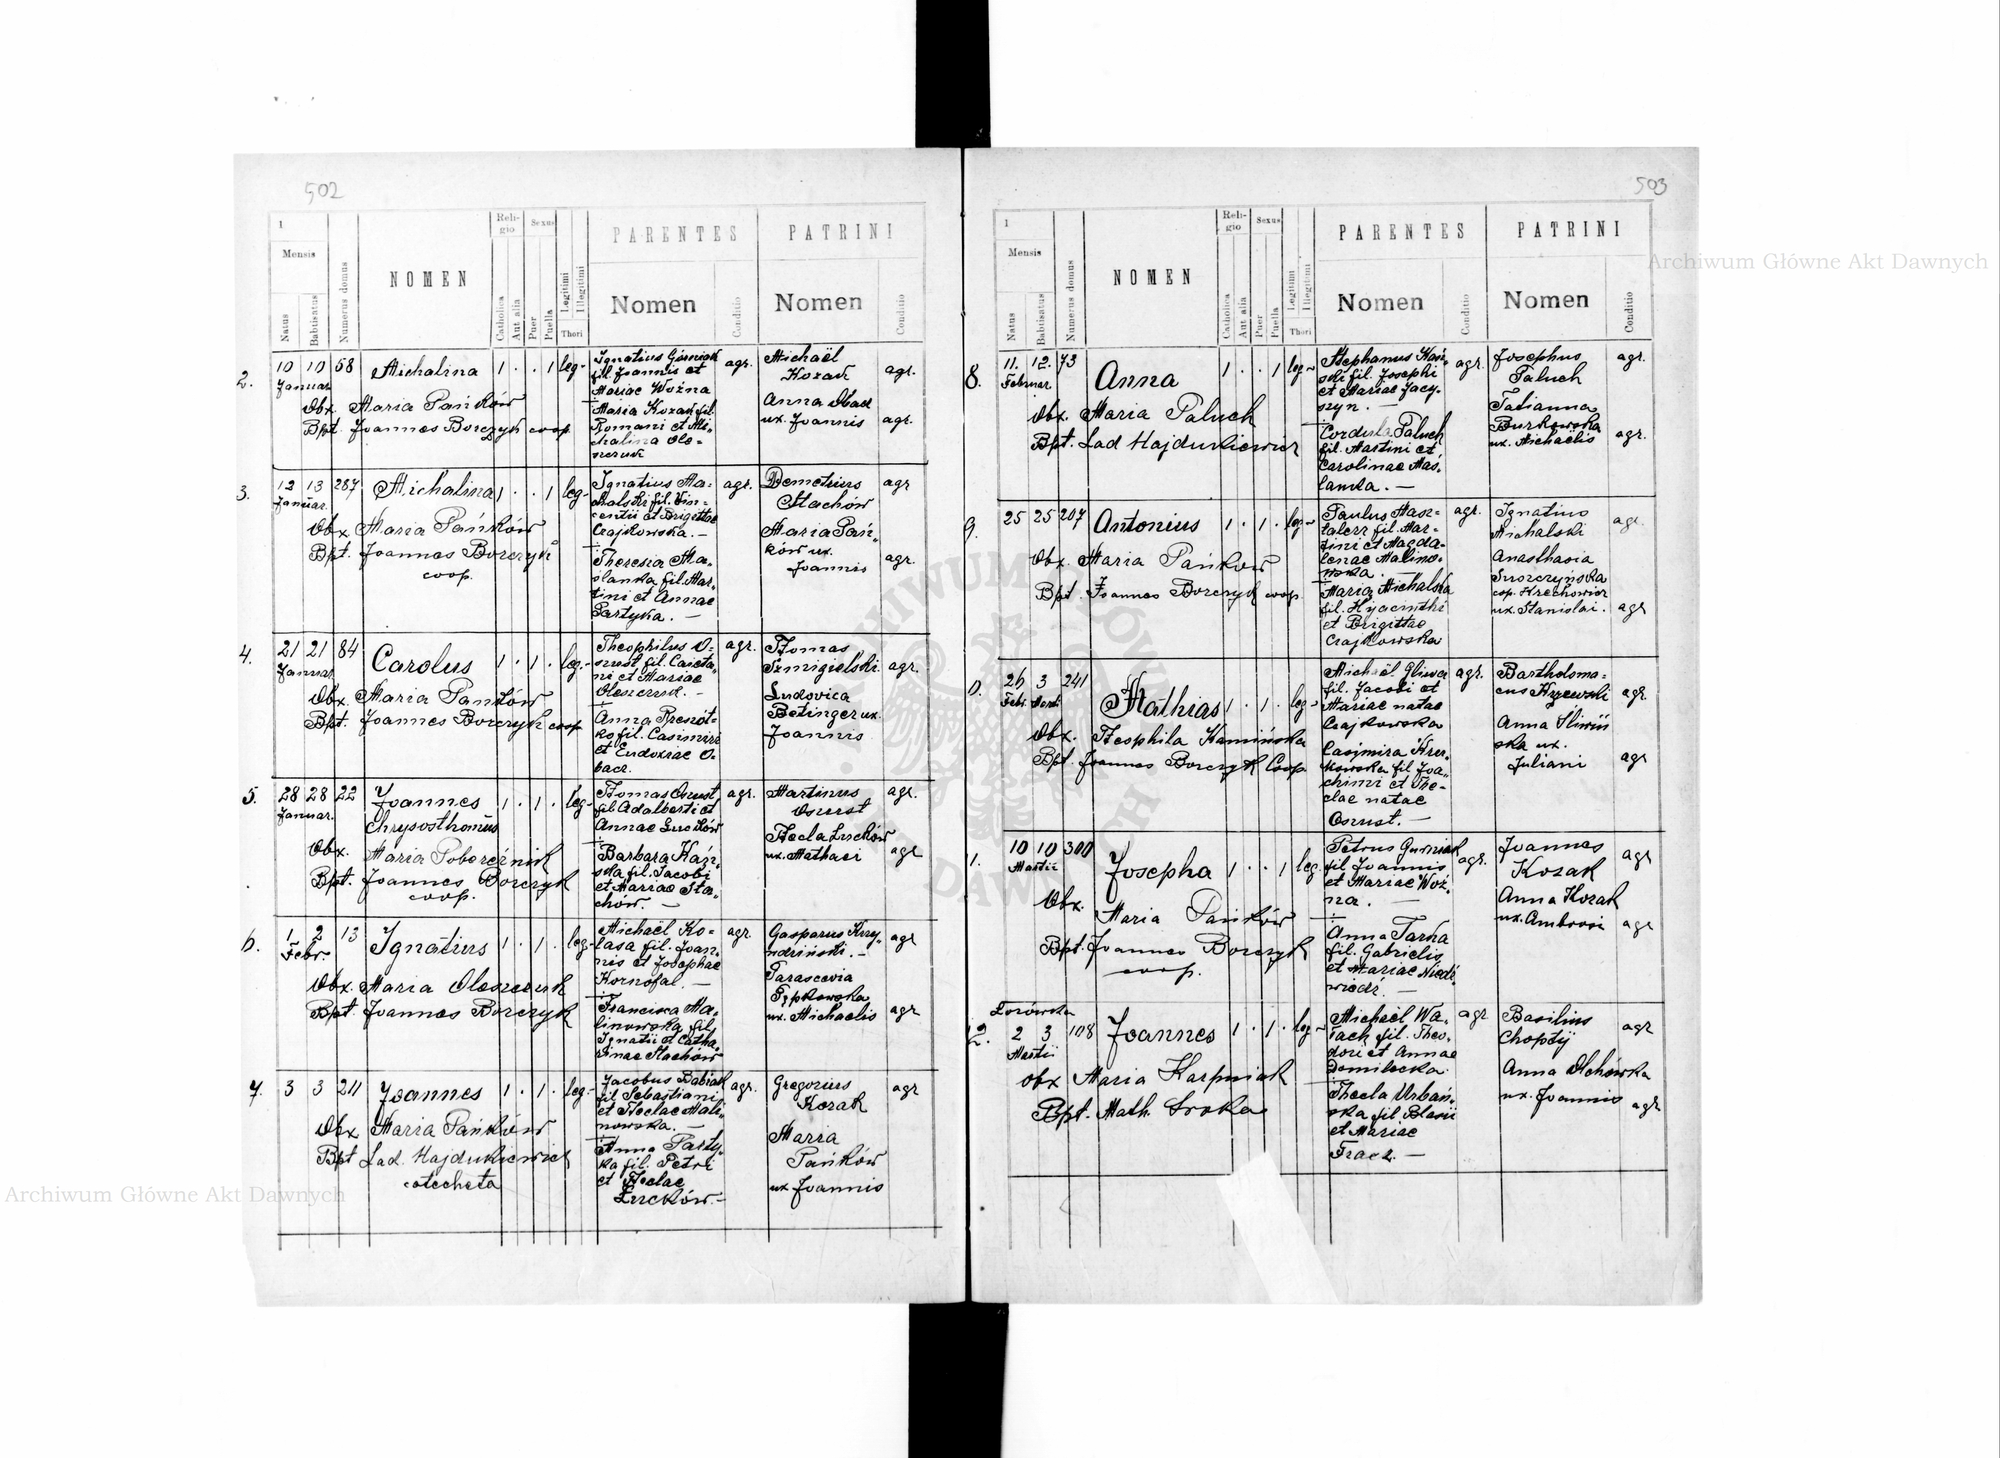 502
1
Mensis
Natus
Babtisatus
Numerus domus
NOMEN
Reli-
gio
Catholica
Aut alia
Sexus
Puer
Puella
Legitimi
Illegitimi
Thori
PARENTES
Nomen
Conditio
PATRINI
Nomen
Conditio
2.
10 10 58
Januar
Michalina
1 . . 1 leg.
Obx. Maria Pańków
Bpt. Joannes Borczyk coop.
Ignatius Górniak
fil. Joannis et
Mariae Woźna
Maria Kozak fil.
Romani et Mi-
chalina Ole-
szczuk
agr.
Michaël
Kozak agr.
Anna
ux. Joannis agr.
3.
12 13 287
Januar.
Michalina
1 . . 1 leg-
Obx Maria Pańków
Bpt. Joannes Borczyk
coop.
Ignatius Ma-
chalski fil. Vin-
centii et Brigittae
Czajkowska. -
Theresia Ma-
slanka fil. Mar-
tini et Annae
Partyka. -
agr.
Demetrius agr
Stachów
Maria Pań-
ków ux.
Joannis agr.
4.
21 21 84
Januar
Carolus
1 . 1 . leg.-
Obx Maria Pańków
Bpt. Joannes Borczyk coop
Theophilus O-
szust fil. Caieta-
ni et Mariae
Oleszczuk. -
Anna
ko fil. Casimiri
et Eudoxiae O-
bacz.
agr.
Thomas
Szmigielski. agr.
Ludovica
Betinger ux.
Joannis
5.
28 28 22
Januar.
Joannes
Chrysosthomus
1 . 1 . leg-
Obx. Maria
Bpt. Joannes Borczyk
coop.
Thomas Oszust
fil. Adalberti et
Annae Łuczków
Barbara Kań-
ska fil. Jacobi
et Mariae Sta-
chów. -
agr.
Martinus agr.
Oszust
Thecla Łuczków
ux. Mathaei agr
6.
1. 2 13
Febr.
Ignatius
1 . 1 . leg-
Obx. Maria Oleszczuk
Bpt. Joannes Borczyk
Michaël Ko-
lasa fil. Joan-
nis et Josephae
Kornafal. -
Francisca Ma-
linowska fil.
Ignatii et Catha-
rinae Stachów
agr.
Gasparus Krzy-
. - agr
Parascevia
ux. Michaelis agr
7.
3 3 211
Joannes
1 . 1 . leg-
Obx Maria Pańków
Bpt Lad. Hajdukiewicz
catecheta
Jacobus Babiak
fil Sebastiani
et Theclae Mali-
nowska. -
Anna Party-
ka fil. Petri
et Theclae
Łuczków. -
agr.
Gregorius agr
Kozak
Maria
Pańków
ux Joannis
503
1
Mensis
Natus
Babtisatus
Numerus domus
NOMEN
Reli-
gio
Catholica
Aut alia
Sexus
Puer
Puella
Legitimi
Illegitimi
Thori
PARENTES
Nomen
Conditio
PATRINI
Nomen
Conditio
8.
11. 12. 73
Februar
Anna
1 . . 1 leg-
Obx. Maria Paluch
Bpt. Lad Hajdukiewicz
Stephanus Kań-
ski fil. Josephi
et Mariae Jacy-
szyn. -
Cordula Paluch
fil. Martini et
Carolinae Mas-
lanka. -
agr.
Josephus agr.
Paluch
Tatianna
Burkowska
ux. Michaëlis agr.
9.
25 25 207
Antonius
1 . 1 . leg-
Obx. Maria Pańków
Bpt. Joannes Borczyk coop.
Paulus Masz-
talerz fil. Mar-
tini et Magda-
lenae Malino-
wska. -
Maria Michalska
fil. Hyacinthi
et Brigittae
Czajkowska
agr.
Ignatius
Michalski agr.
Anasthasia
Suszczyńska
ux. Stanislai. agr
0.
26 3 241
Febr. Martii
Mathias
1 . 1 . leg-
Obx. Theophila Kamińska
Bpt. Joannes Borczyk Coop.
Michaël Gliwa
fil. Jacobi et
Mariae natae
Czajkowska
Casimira Kru-
kowska fil Joa-
chimi et The-
clae natae
Oszust. -
agr.
Bartholomo-
eus agr.
Anna Śliwiń
ska ux.
Juliani agr
1.
10 10 300
Martii
Josepha
1 . . 1 leg.
Obx. Maria Pańków
Bpt. Joannes Borczyk
coop.
Petrus Gurniak
fil Joannis
et Mariae Woź-
na. -
Anna Tarka
fil. Gabrielis
et Mariae Niedź-
wiedź. -
agr.
Joannes agr
Kozak
Anna Kozak
ux. Ambrosi agr
12.
2 3 108
Martii
Joannes
1 . 1 . leg-
Obx Maria Karpniak
Bpt. Math. Sroka
Michaël Wa-
fil. Theo-
dori et Annae
Thecla Urbań-
ska fil Blasii
et Mariae
Fracz. -
agr
Basilius agr
Choptij
Anna
ux. Joannis agr
Archiwum Główne Akt Dawnych
Archiwum Główne Akt Dawnych
ARCHIWUM GŁÓWNE AKT DAWNYCH